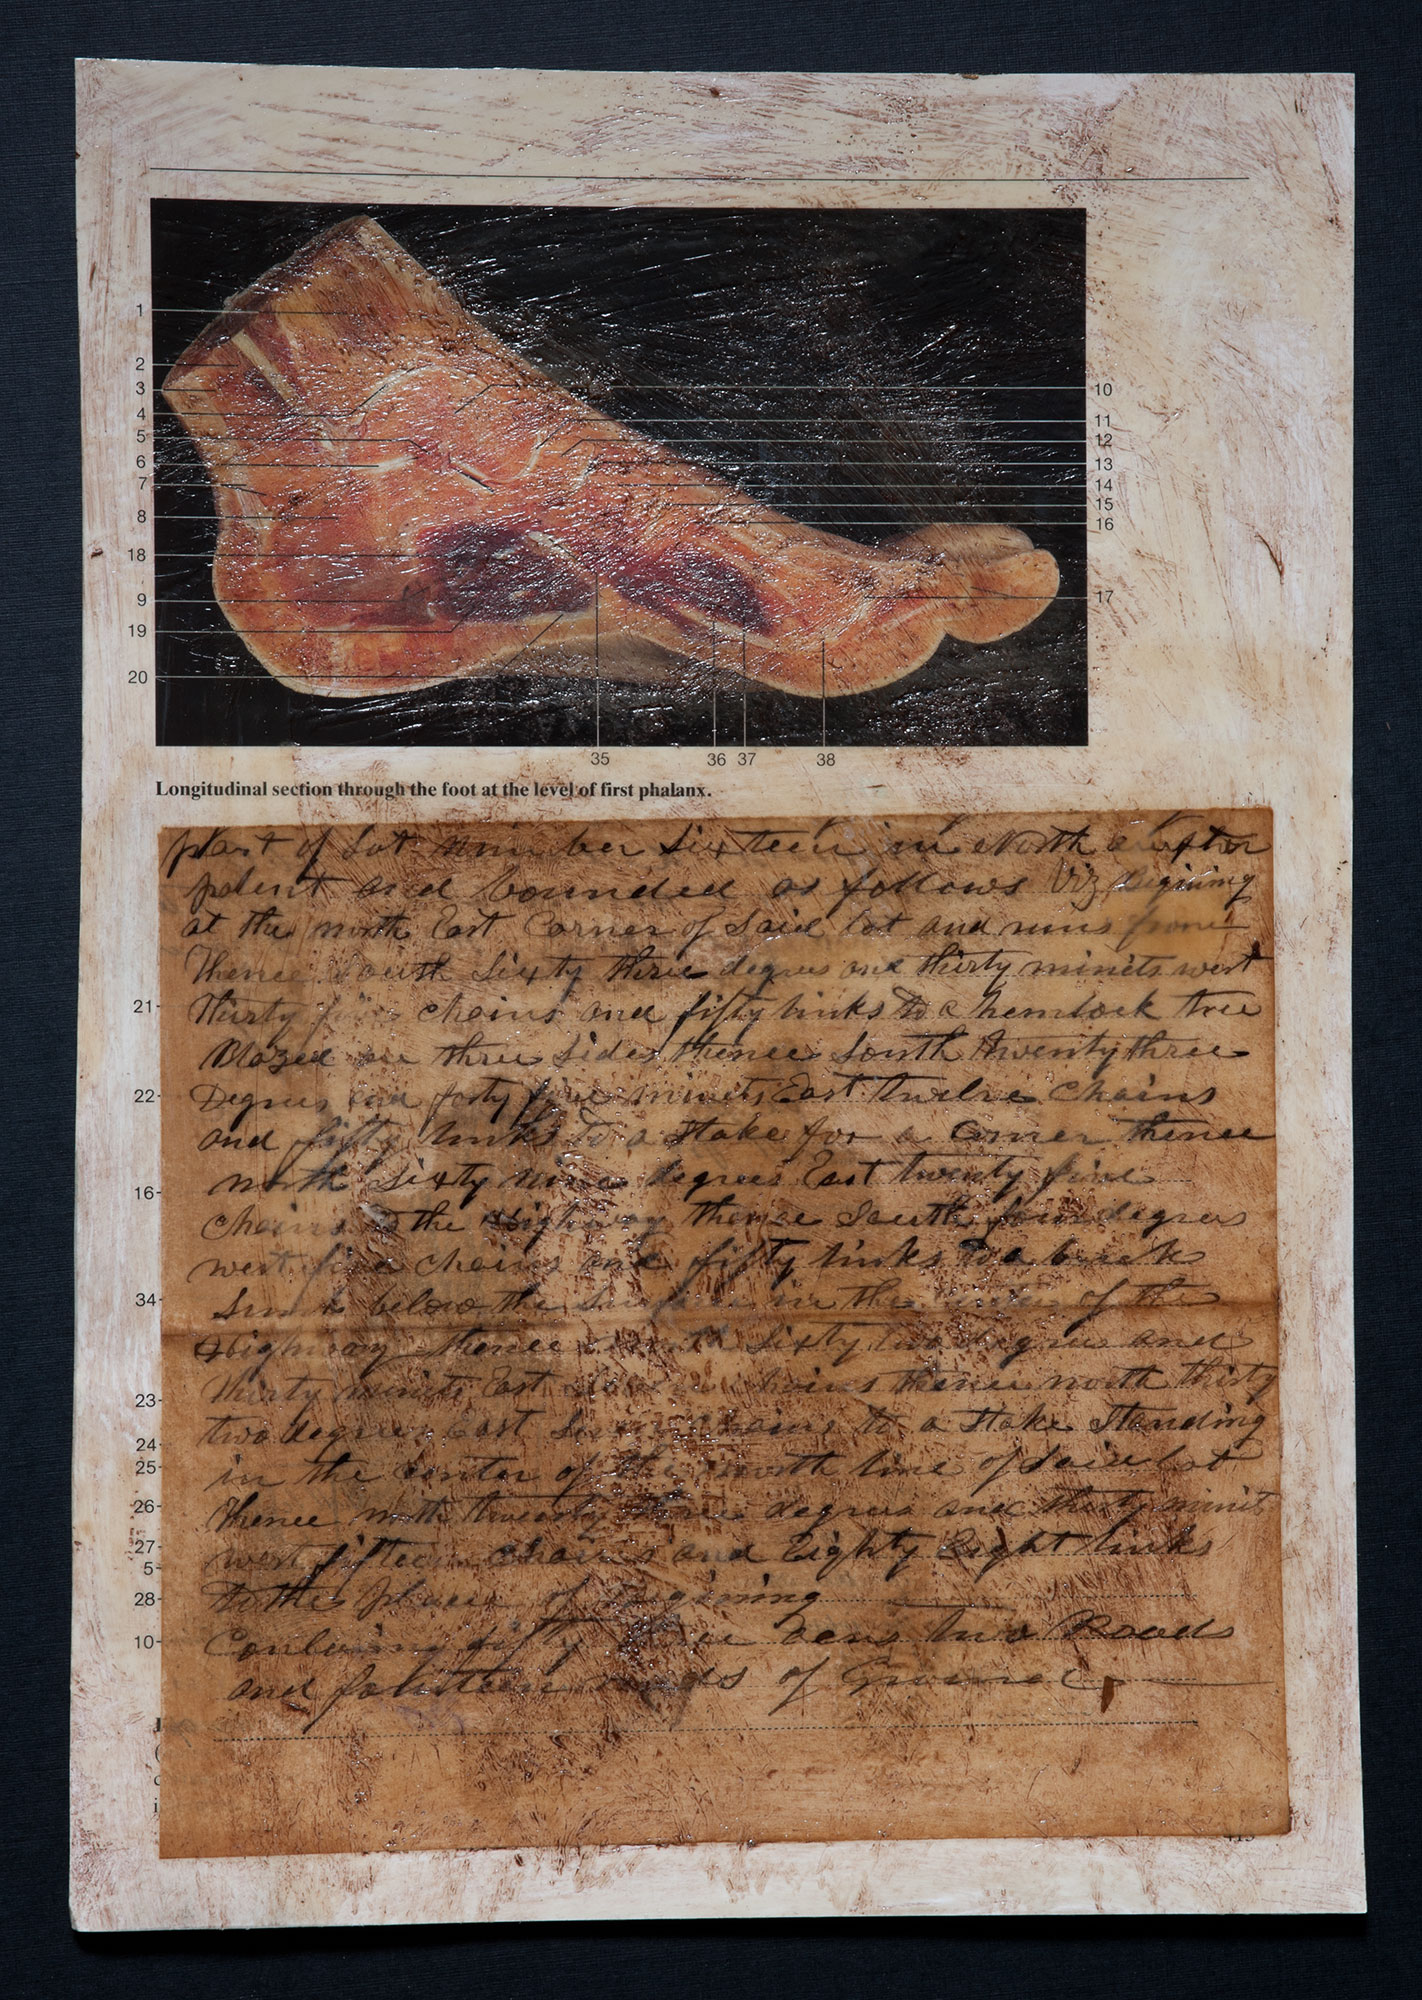 1
2
3
4
5
6
7
8
18
9
19
20
10
11
12
13
14
15
16
17
35 36 37 38
Longitudinal section through the foot at the level of first phalanx.
part of Lot number Sixteen in North
patent and bounded as follows Viz Begining
at the north East Corner of Said lot and runs from
Thence South Sixty three degrees and thirty minits west
Thirty five chains and fifty links to a hemlock tree
Blazed on three Sides thence South twenty three
Degrees and forty five minits East twelve Chains
and fifty links to a Stake for a Corner thence
north Sixty nine degrees East twenty five
chains to the Highway thence South four degrees
west five chains and fifty links to a
Sunk below the Surface in the center of the
Highway thence Sixty two degrees and
thirty minits East chains thence north thirty
two degrees East chains to a Stake Standing
in the center of the north line of Said Lot
thence north twenty three degrees and thirty minits
west fifteen chains and Eighty Eight links
to the place of begining
Containing fifty three acres two Roods
and fourteen rods of Ground
21
22
16
34
23
24
25
26
27
5
28
10